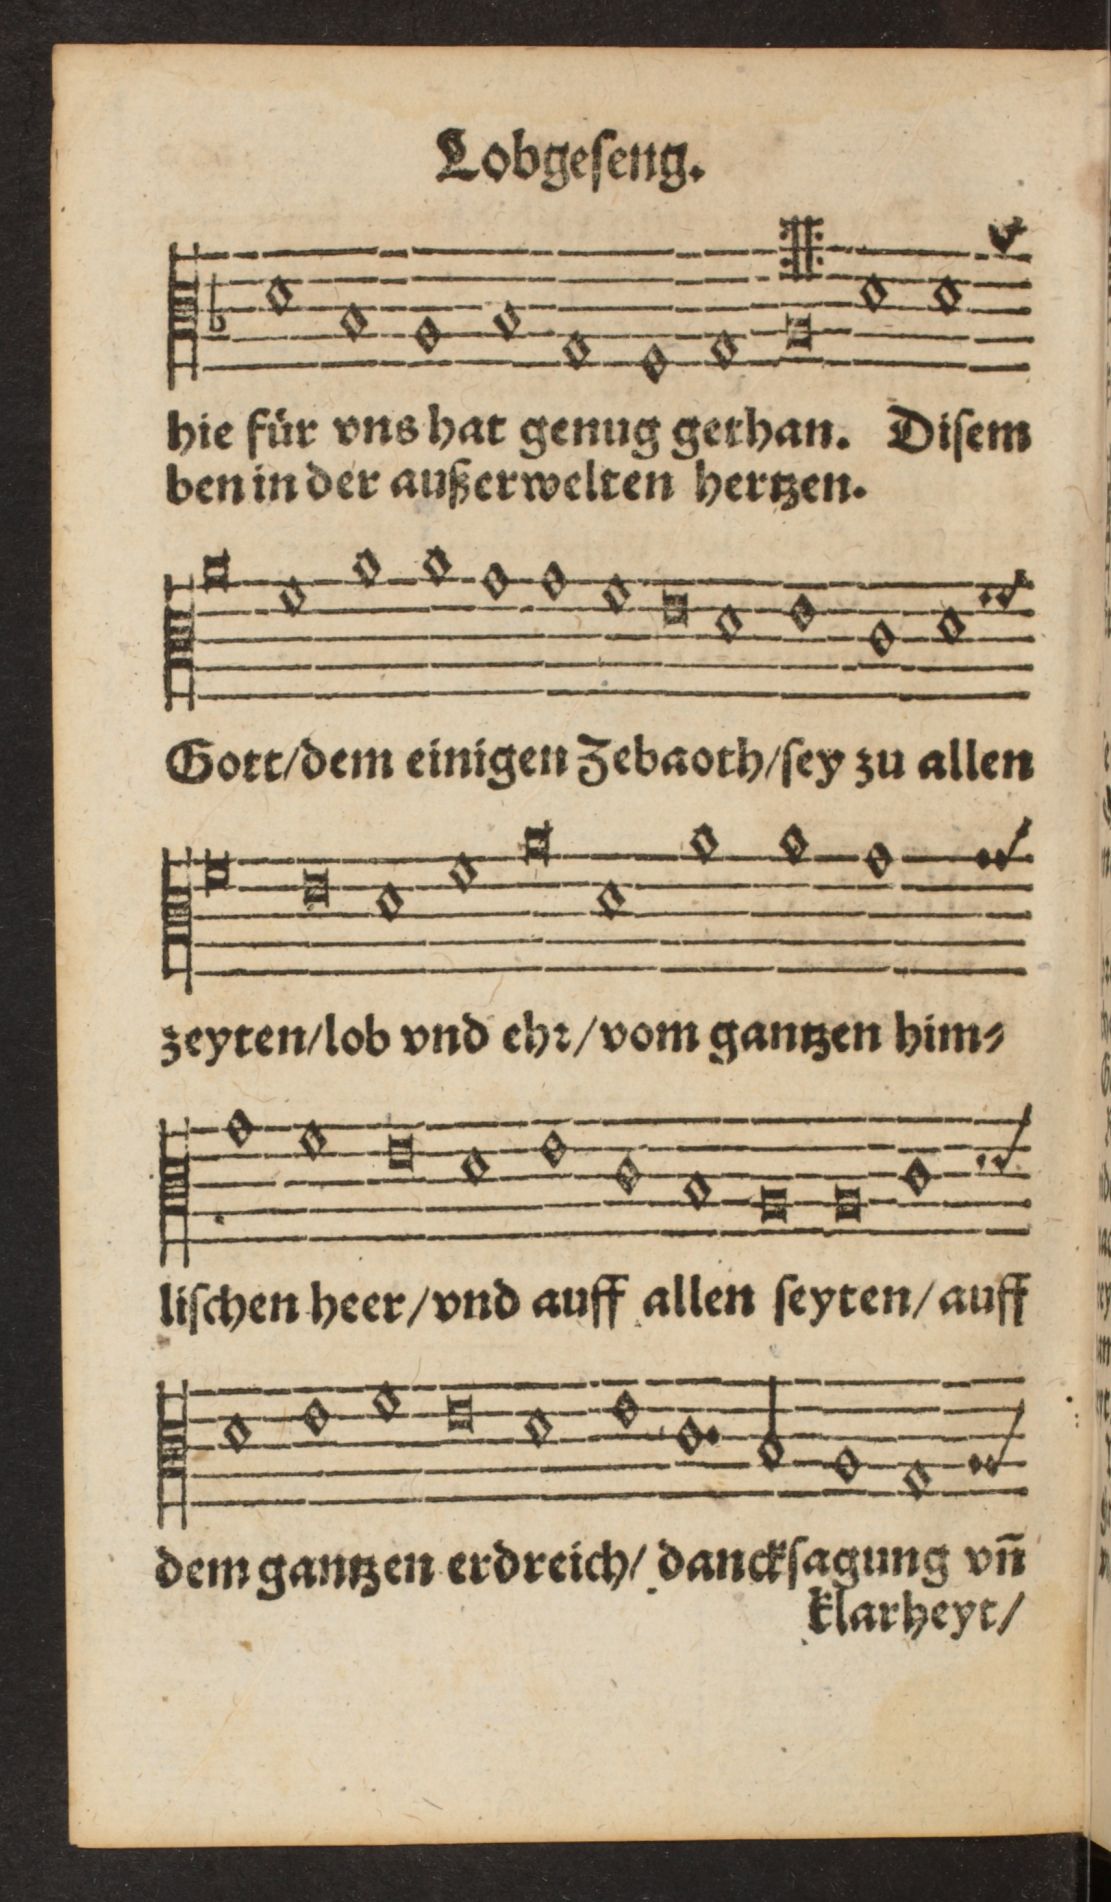 Lobgeſeng.
hie für vns hat genug gethan. Diſem
ben in der außerwelten hertzen.
Gott/dem einigen Zebaoth/ſey zu allen
zeyten/lob vnd ehꝛ/vom gantzen him⸗
liſchen heer/vnd auff allen ſeyten/auff
dem gantzen erdreich/ danckſagung vn̄
klarheyt/